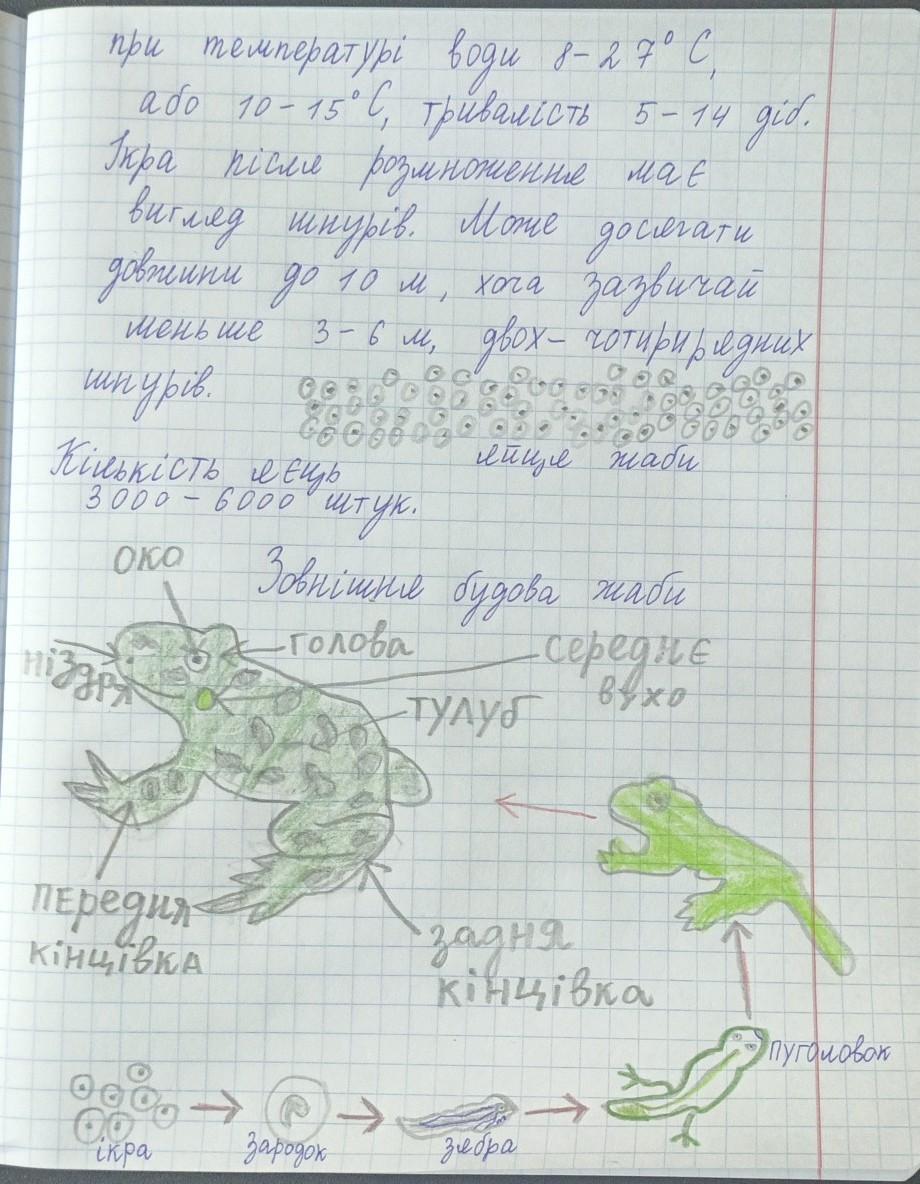 при температурі води 8-27° С,
або 10-15° С, тривалість 5-14 діб.
Ікра після розмноження має
вигляд шнурів. Може досягати
довжини до 10 м, хоча зазвичай
меньше 3-6 м, двох-чотирирядних
шнурів.
яйця жаби
Кількість яєць
3000-6000 штук.
Зовнішня будова жаби
око
голова
середнє
вухо
ніздря
тулуб
передня
кінцівка
задня
кінцівка
пуголовок
ікра
зародок
зябра